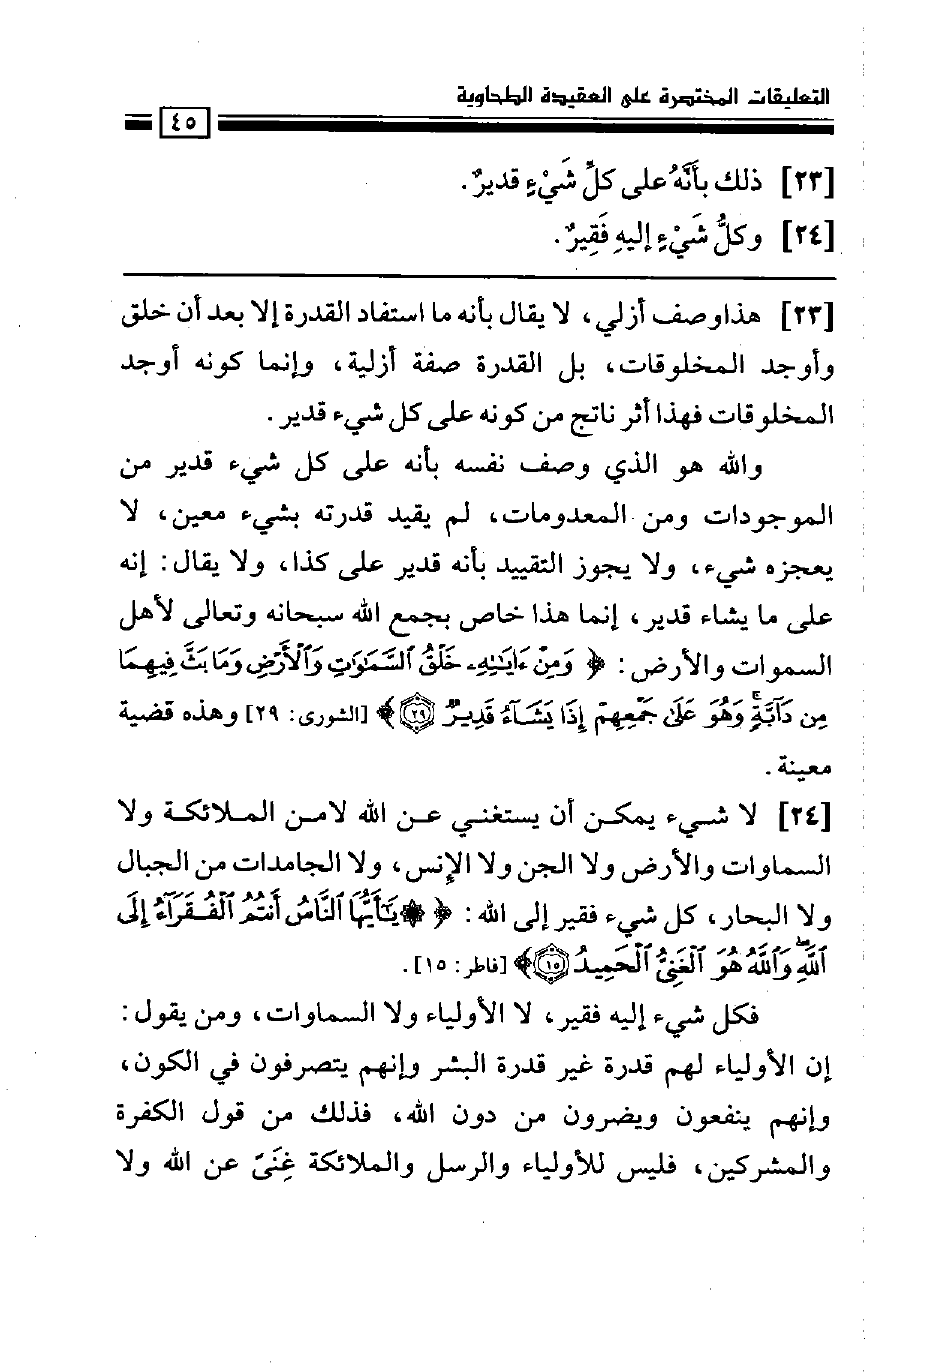 التعليقات المختصرة على العقيدة الطحاوية
٤٥
[٢٣] ذلك بأَنَّهُ على كلِّ شَيْءٍ قديرٌ.
[٢٤] وكلُّ شَيْءٍ إليهِ فَقِيرٌ.
[٢٣] هذا وصف أزلي، لا يقال بأنه ما استفاد القدرة إلا بعد أن خلق
وأوجد المخلوقات، بل القدرة صفة أزلية، وإنما كونه أوجد
المخلوقات فهذا أثر ناتج من كونه على كل شيء قدير.
والله هو الذي وصف نفسه بأنه على كل شيء قدير من
الموجودات ومن المعدومات، لم يقيد قدرته بشيء معين، لا
يعجزه شيء، ولا يجوز التقييد بأنه قدير على كذا، ولا يقال: إنه
على ما يشاء قدير، إنما هذا خاص بجمع الله سبحانه وتعالى لأهل
السموات والأرض: ﴿ وَمِنْ ءَايَٰتِهِۦ خَلْقُ ٱلسَّمَٰوَٰتِ وَٱلْأَرْضِ وَمَا بَثَّ فِيهِمَا
مِن دَآبَّةٍ ۚ وَهُوَ عَلَىٰ جَمْعِهِمْ إِذَا يَشَآءُ قَدِيرٌ ٢٩﴾ [الشورى: ٢٩] وهذه قضية
معينة.
[٢٤] لا شيء يمكن أن يستغني عن الله لا من الملائكة ولا
السماوات والأرض ولا الجن ولا الإنس، ولا الجامدات من الجبال
ولا البحار، كل شيء فقير إلى الله: ﴿ ۞ يَٰٓأَيُّهَا ٱلنَّاسُ أَنتُمُ ٱلْفُقَرَآءُ إِلَى
ٱللَّهِ ۖ وَٱللَّهُ هُوَ ٱلْغَنِىُّ ٱلْحَمِيدُ ١٥﴾ [فاطر: ١٥].
فكل شيء إليه فقير، لا الأولياء ولا السماوات، ومن يقول:
إن الأولياء لهم قدرة غير قدرة البشر وإنهم يتصرفون في الكون،
وإنهم ينفعون ويضرون من دون الله، فذلك من قول الكفرة
والمشركين، فليس للأولياء والرسل والملائكة غِنَىً عن الله ولا